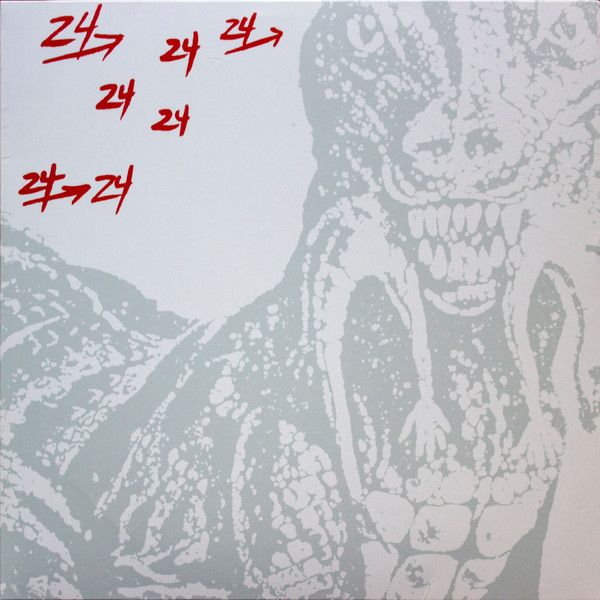 24→ 24 24→
24 24
24→24